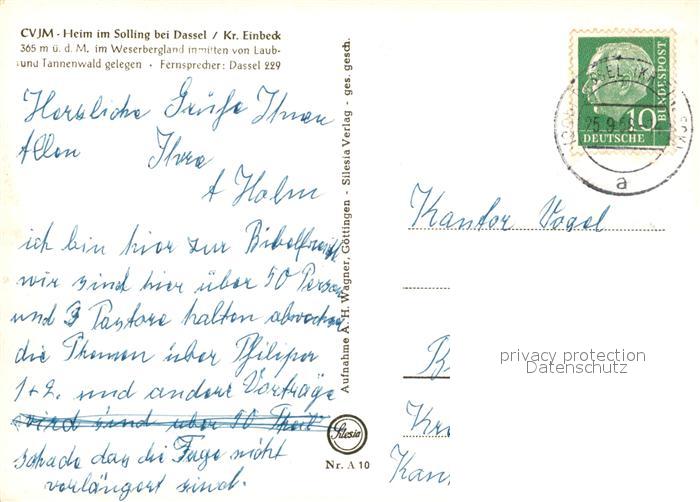 CVJM - Heim im Solling bei Dassel / Kr. Einbeck
365 m ü. d. M. im Weserbergland inmitten von Laub-
und Tannenwald gelegen • Fernsprecher: Dassel 229
Herzliche Grüße Ihnen
Allen Ihre
A Holm
ich bin hier zur Bibelfreizeit
wir sind hier über 50 Person
und 3 Pastore halten abwechs
die Themen über Philiper
1+2. und andere Vorträge
wird sind über 50
schade das die Tage nicht
verlängert sind.
Aufnahme A. H. Wagner, Göttingen - Silesia Verlag - ges. gesch.
Silesia
Nr. A 10
DEUTSCHE
BUNDESPOST
10
25.9.5
a
Kantor Vogel
B
Kr
Kan
privacy protection
Datenschutz